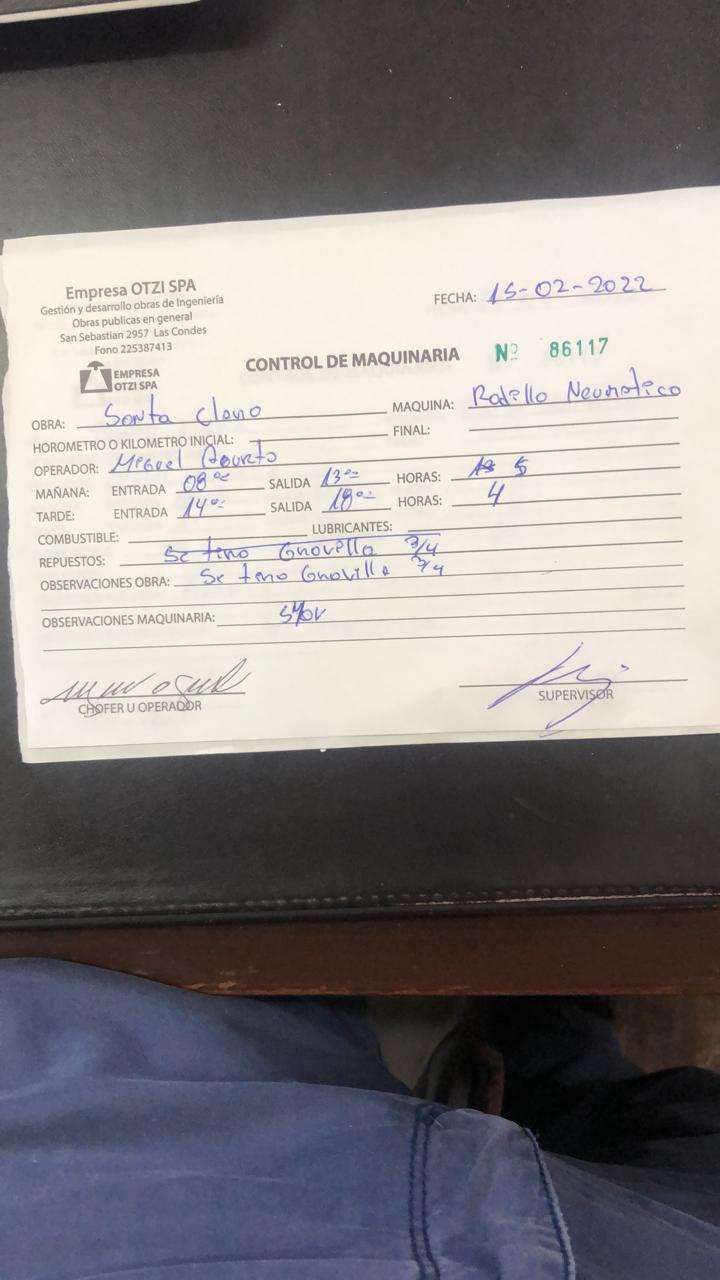 Empresa OTZI SPA
Gestión y desarrollo obras de Ingeniería
Obras publicas en general
San Sebastian 2957 Las Condes
Fono 225387413
EMPRESA
OTZI SPA
FECHA: 15-02-2022
CONTROL DE MAQUINARIA Nº 86117
OBRA: Santa Clara MAQUINA: Rodillo Neumatico
HOROMETRO O KILOMETRO INICIAL: FINAL:
OPERADOR: Miguel
MAÑANA: ENTRADA 08:00 SALIDA 13:00 HORAS: 5
TARDE: ENTRADA 14:00 SALIDA 18:00 HORAS: 4
COMBUSTIBLE: LUBRICANTES:
REPUESTOS: Gravilla 3/4
OBSERVACIONES OBRA: Gravilla 3/4
OBSERVACIONES MAQUINARIA:
CHOFER U OPERADOR
SUPERVISOR